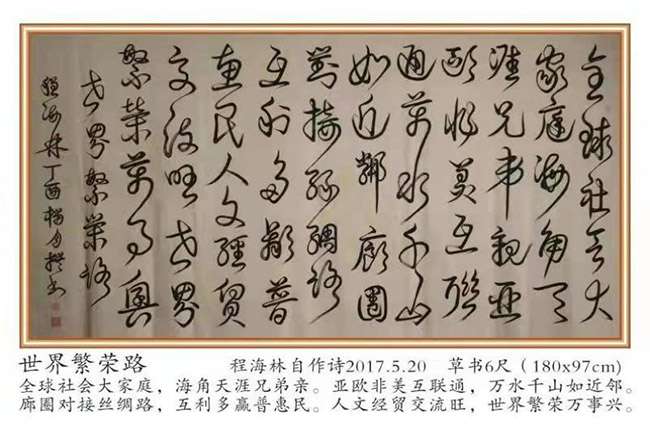 全球社会大
家庭海角天
涯兄弟親亞
歐非美互聯
通萬水千山
如近鄰廊圈
對接絲綢路
互利多贏普
惠民人文經貿
交流旺世界
繁榮萬事興
世界繁榮路
程海林丁酉
世界繁荣路 程海林自作诗2017.5.20 草书6尺（180x97cm)
全球社会大家庭，海角天涯兄弟亲。亚欧非美互联通，万水千山如近邻。
廊圈对接丝绸路，互利多赢普惠民。人文经贸交流旺，世界繁荣万事兴。